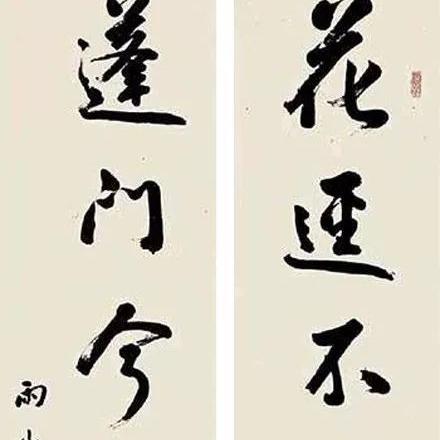 花逕不
蓬门今
雨